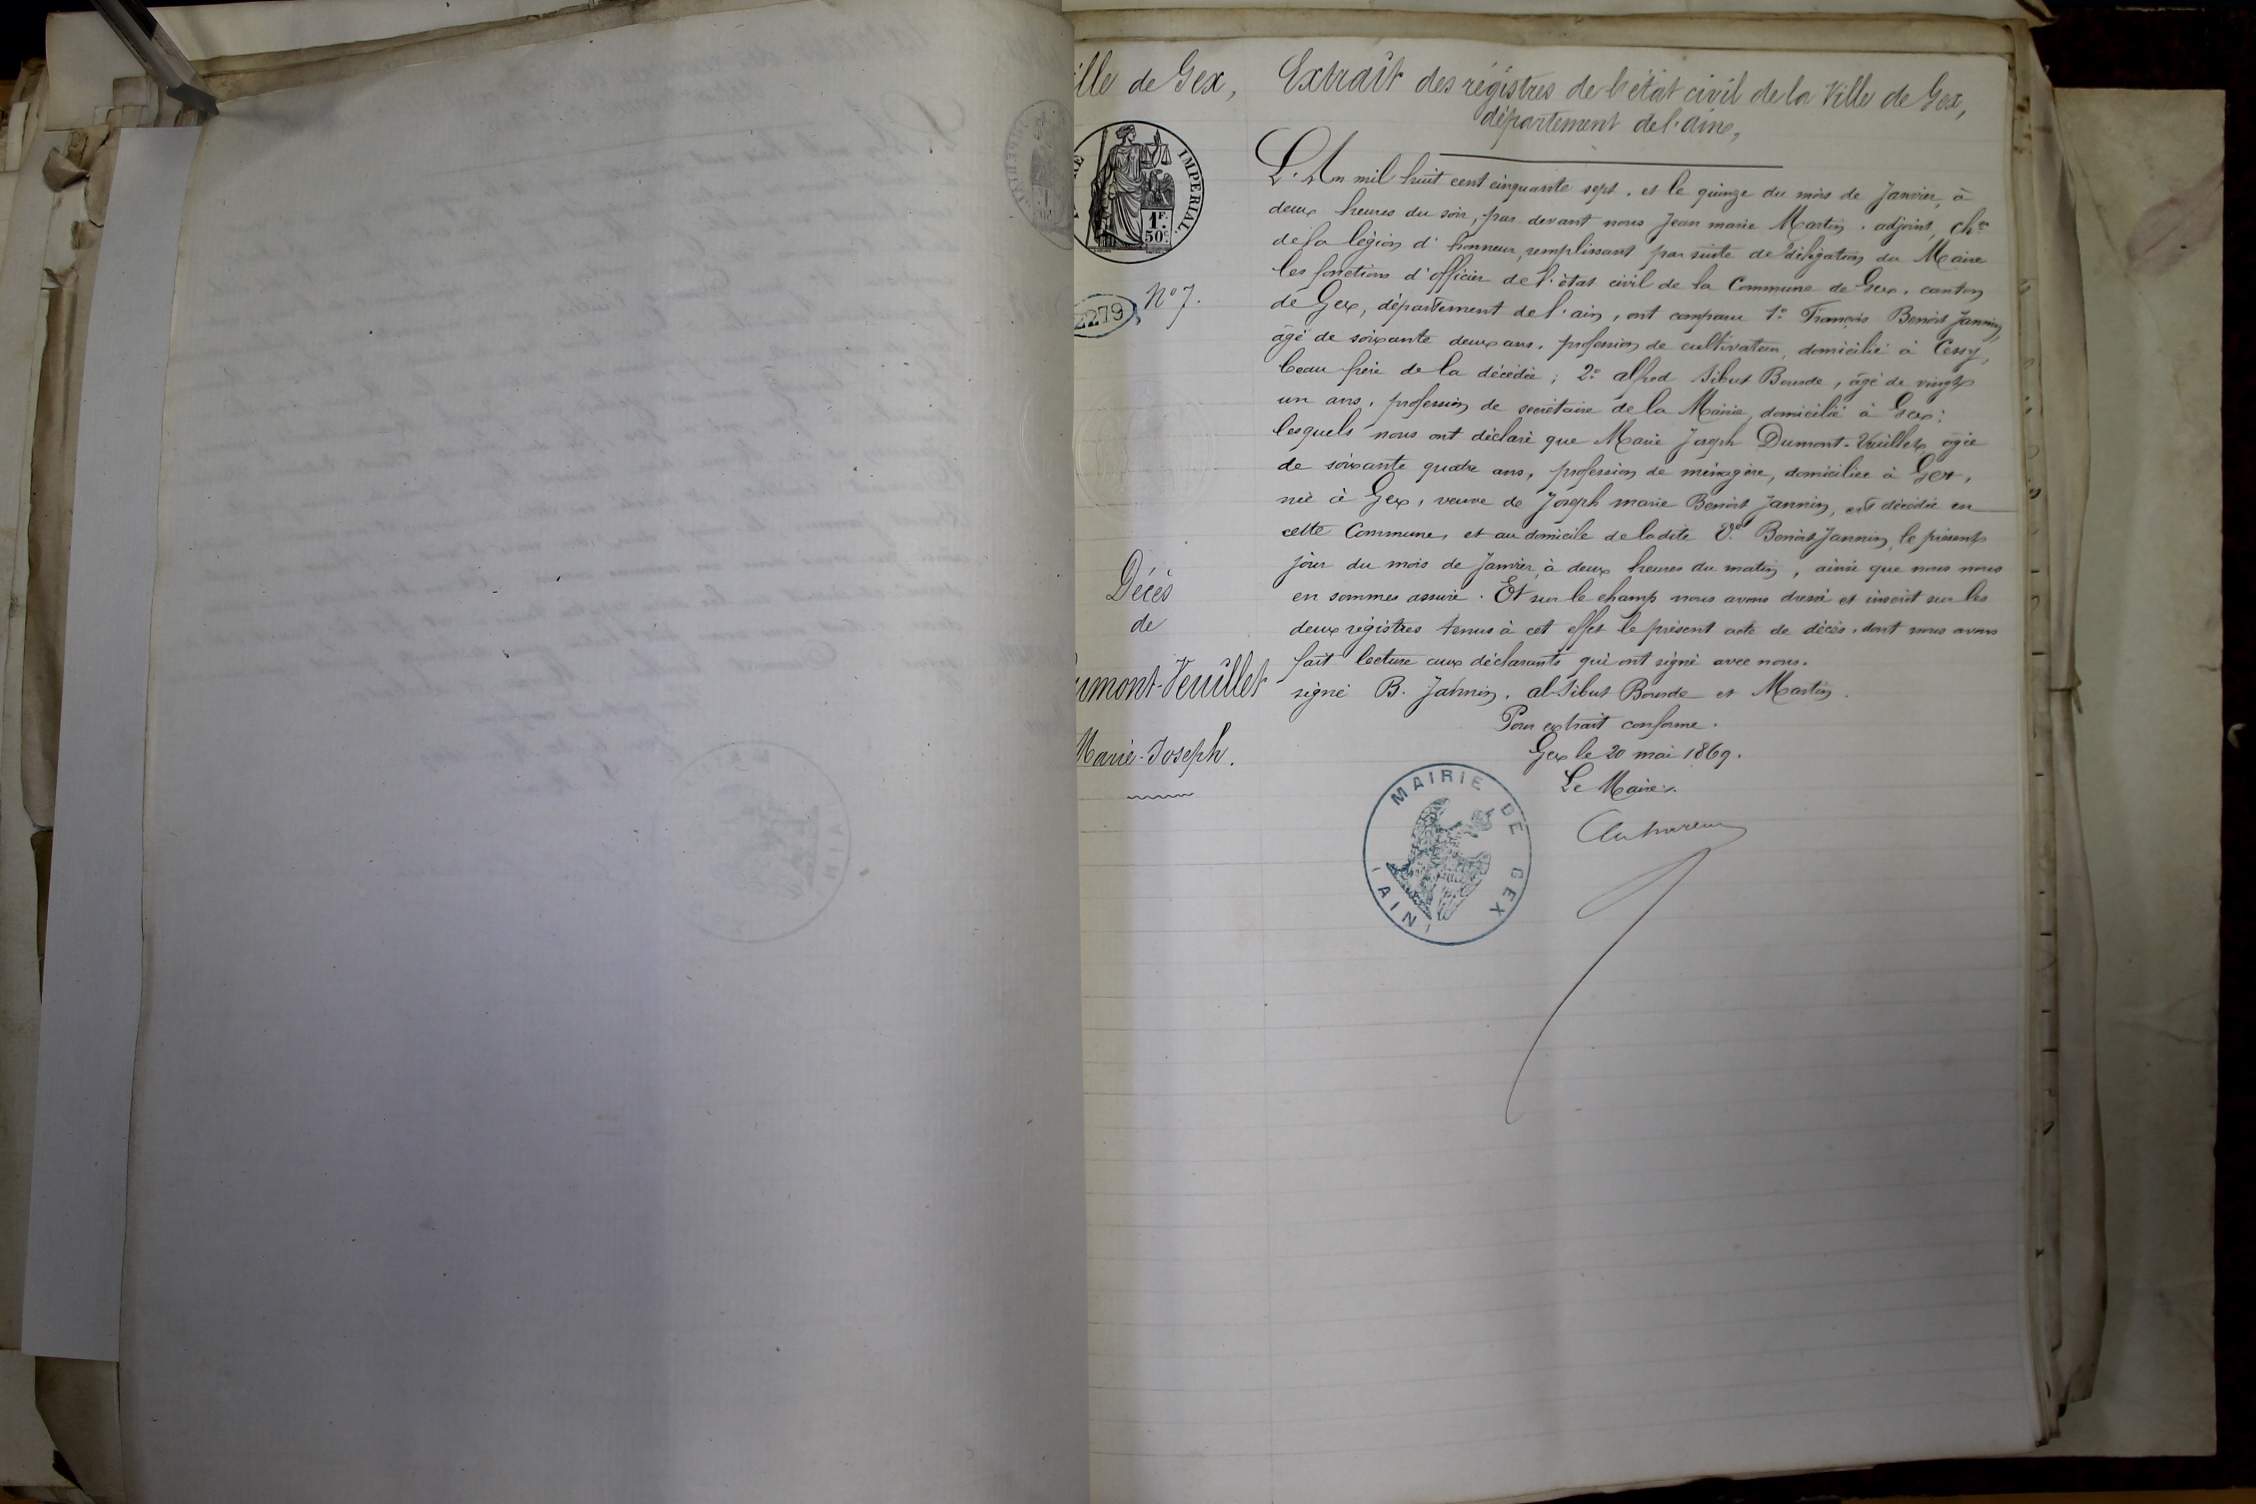 ille de Gex,
IMPERIAL.
1F.
50c.
2279
No 7.
Décès
de
umont-Veuillet
Marie-Joseph.
Extrait des régistres de l'état civil de la Ville de Gex,
département de l'ain,
L'An mil huit cent cinquante sept, et le quinze du mois de Janvier, à
deux heures du soir, par devant nous Jean marie Martin, adjoint, Cher
de la légion d'honneur, remplissant par suite de délégation du Maire
les fonctions d'officier de l'état civil de la Commune de Gex, canton
de Gex, département de l'ain, ont comparu 1o François Benoit Jannin,
âgé de soixante deux ans, profession de cultivateur, domicilié à Cessy,
beau frère de la décédée; 2o alfred Sibut Bourde, âgé de vingt
un ans, profession de secrétaire de la Mairie, domicilié à Gex;
lesquels nous ont déclaré que Marie Joseph Dumont-Vueillet, agée
de soixante quatre ans, profession de ménagère, domiciliée à Gex,
née à Gex, veuve de Joseph marie Benoit Jannin, est décédée en
cette Commune, et au domicile de ladite Ve Benoit Jannin, le présent
jour du mois de Janvier, à deux heures du matin, ainsi que nous nous
en sommes assuré. Et sur le champ nous avons dressé et inscrit sur les
deux régistres tenus à cet effet le présent acte de décès, dont nous avons
fait lecture aux déclarants qui ont signé avec nous.
signé B. Jahnin, al Sibut Bourde et Martin.
Pour extrait conforme.
Gex le 20 mai 1869.
Le Maire.
MAIRIE DE GEX
(AIN)